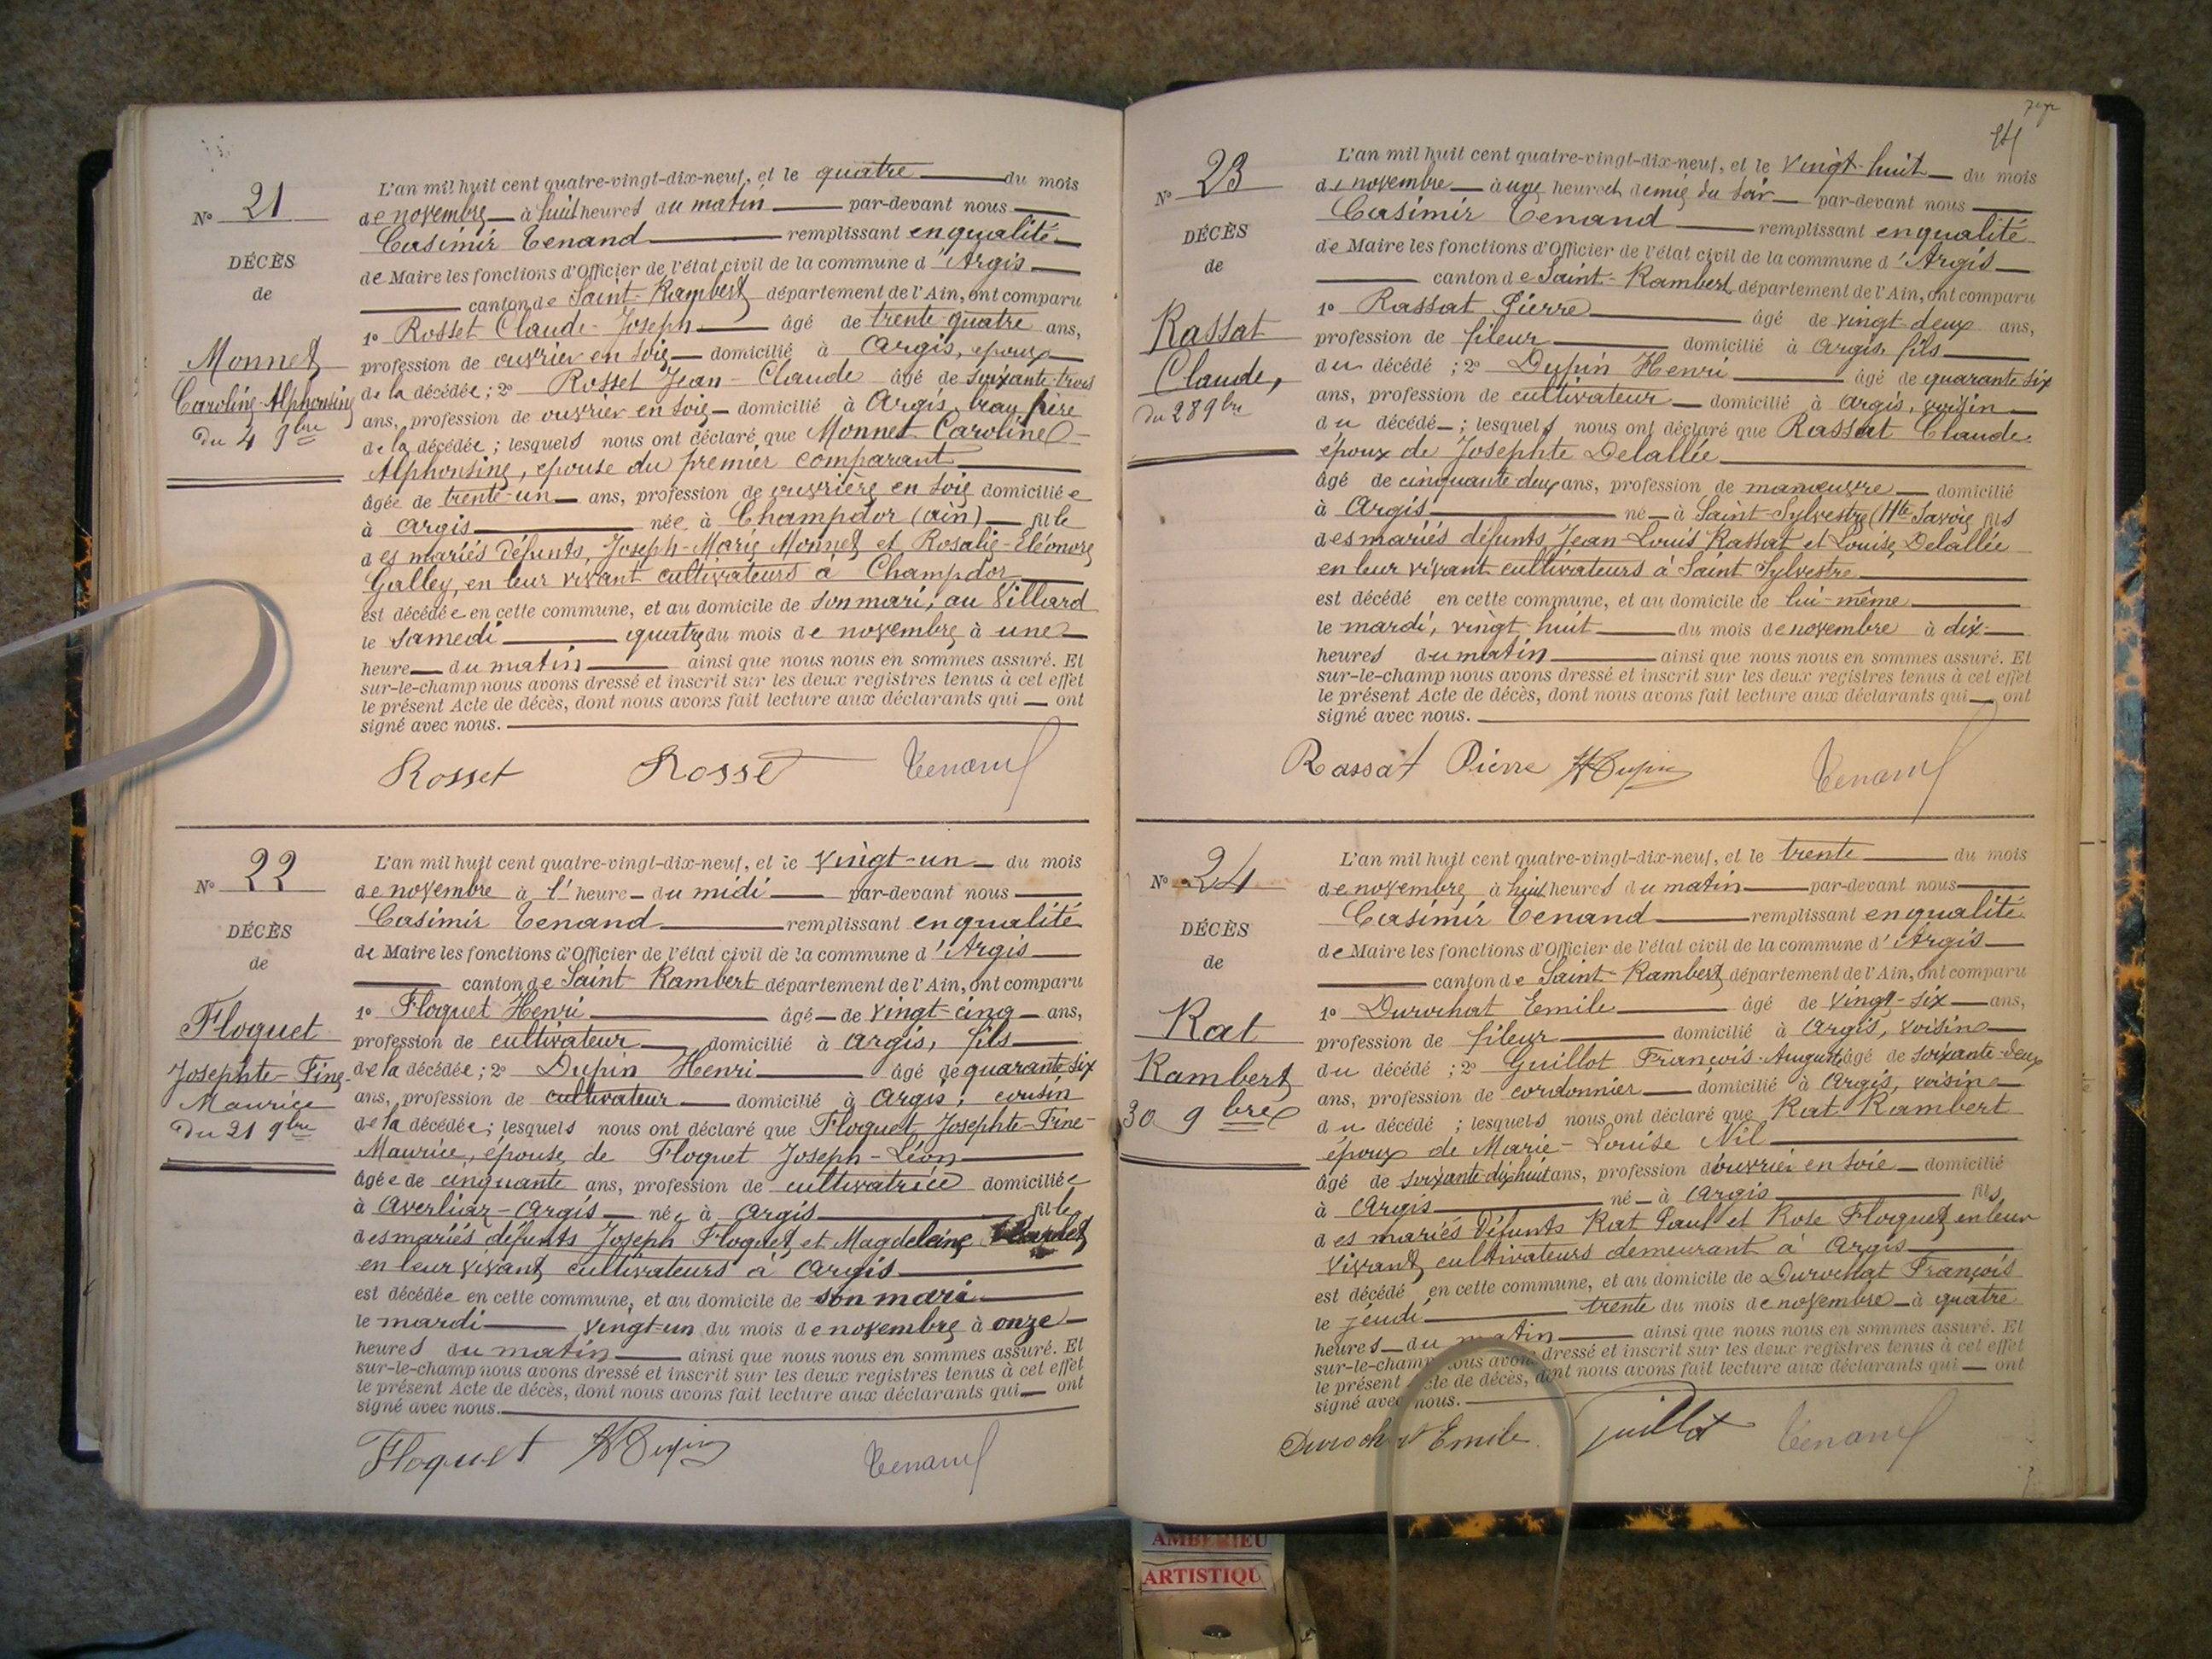 N° 21
DÉCÈS
de
Monnet
Caroline-Alphonsine
du 4 9bre
L'an mil huit cent quatre-vingt-dix-neuf, et le quatre du mois
de novembre à huit heures du matin par-devant nous
Casimir Tenand remplissant en qualité
de Maire les fonctions d'Officier de l'état civil de la commune d'Argis
canton de Saint-Rambert département de l'Ain, ont comparu
1° Rosset Claude-Joseph âgé de trente-quatre ans,
profession de ouvrier en soie domicilié à Argis, époux
de la décédée; 2° Rosset Jean-Claude âgé de soixante-trois
ans, profession de ouvrier en soie domicilié à Argis, beau père
de la décédée; lesquels nous ont déclaré que Monnet Caroline
Alphonsine, épouse du premier comparant
âgée de trente-un ans, profession de ouvrière en soie domiciliée
à Argis née à Champdor (Ain) fille
des mariés défunts, Joseph-Marie Monnet et Rosalie-Eléonore
Galley, en leur vivant cultivateurs à Champdor
est décédée en cette commune, et au domicile de son mari, au Villard
le samedi quatre du mois de novembre à une
heure du matin ainsi que nous nous en sommes assuré. Et
sur-le-champ nous avons dressé et inscrit sur les deux registres tenus à cet effet
le présent Acte de décès, dont nous avons fait lecture aux déclarants qui ont
signé avec nous.
Rosset Rosset Tenand
N° 22
DÉCÈS
de
Floquet
Josephte-Fine-
Maurice
du 21 9bre
L'an mil huit cent quatre-vingt-dix-neuf, et le vingt-un du mois
de novembre à l'heure du midi par-devant nous
Casimir Tenand remplissant en qualité
de Maire les fonctions d'Officier de l'état civil de la commune d'Argis
canton de Saint-Rambert département de l'Ain, ont comparu
1° Floquet Henri âgé de vingt-cinq ans,
profession de cultivateur domicilié à Argis, fils
de la décédée; 2° Dupin Henri âgé de quarante six
ans, profession de cultivateur domicilié à Argis, cousin
de la décédée; lesquels nous ont déclaré que Floquet Josephte-Fine-
Maurice, épouse de Floquet Joseph-Léon
âgée de cinquante ans, profession de cultivatrice domiciliée
à Averliaz-Argis née à Argis fille
des mariés défunts Joseph Floquet et Magdeleine
en leur vivant cultivateurs à Argis
est décédée en cette commune, et au domicile de son mari
le mardi vingt-un du mois de novembre à onze
heures du matin ainsi que nous nous en sommes assuré. Et
sur-le-champ nous avons dressé et inscrit sur les deux registres tenus à cet effet
le présent Acte de décès, dont nous avons fait lecture aux déclarants qui ont
signé avec nous.
Floquet H Dupin Tenand
N° 23
DÉCÈS
de
Rassat
Claude,
du 28 9bre
L'an mil huit cent quatre-vingt-dix-neuf, et le vingt-huit du mois
de novembre à une heure et demie du soir par-devant nous
Casimir Tenand remplissant en qualité
de Maire les fonctions d'Officier de l'état civil de la commune d'Argis
canton de Saint-Rambert département de l'Ain, ont comparu
1° Rassat Pierre âgé de vingt-deux ans,
profession de fileur domicilié à Argis, fils
du décédé; 2° Dupin Henri âgé de quarante six
ans, profession de cultivateur domicilié à Argis, voisin
du décédé; lesquels nous ont déclaré que Rassat Claude,
époux de Josephte Delallée
âgé de cinquante deux ans, profession de manœuvre domicilié
à Argis né à Saint-Sylvestre (Hte Savoie fils
des mariés défunts Jean-Louis Rassat et Louise Delallée
en leur vivant cultivateurs à Saint Sylvestre
est décédé en cette commune, et au domicile de lui-même
le mardi, vingt huit du mois de novembre à dix
heures du matin ainsi que nous nous en sommes assuré. Et
sur-le-champ nous avons dressé et inscrit sur les deux registres tenus à cet effet
le présent Acte de décès, dont nous avons fait lecture aux déclarants qui ont
signé avec nous.
Rassat Pierre H Dupin Tenand
N° 24
DÉCÈS
de
Rat
Rambert
30 9bre
L'an mil huit cent quatre-vingt-dix-neuf, et le trente du mois
de novembre, à huit heures du matin par-devant nous
Casimir Tenand remplissant en qualité
de Maire les fonctions d'Officier de l'état civil de la commune d'Argis
canton de Saint-Rambert département de l'Ain, ont comparu
1° Durochat Emile âgé de vingt-six ans,
profession de fileur domicilié à Argis, voisin
du décédé; 2° Guillot François-Auguste âgé de soixante-deux
ans, profession de cordonnier domicilié à Argis, voisin
du décédé; lesquels nous ont déclaré que Rat Rambert
époux de Marie-Louise Nil
âgé de soixante dix huit ans, profession d'ouvrier en soie domicilié
à Argis né à Argis fils
des mariés défunts Rat Paul et Rose Floquet en leur
vivant, cultivateurs demeurant à Argis
est décédé en cette commune, et au domicile de Durochat François
le jeudi trente du mois de novembre à quatre
heures du matin ainsi que nous nous en sommes assuré. Et
sur-le-champ nous avons dressé et inscrit sur les deux registres tenus à cet effet
le présent Acte de décès, dont nous avons fait lecture aux déclarants qui ont
signé avec nous.
Durochat Emile Guillot Tenand
AMBERIEU
ARTISTIQU